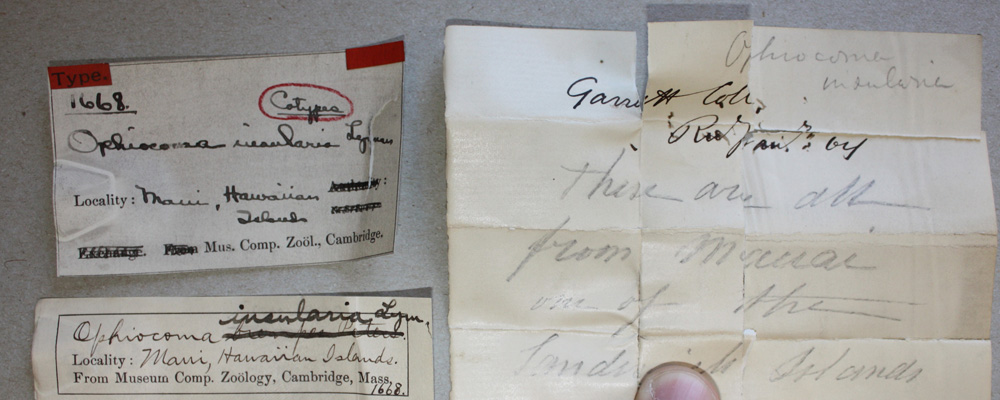 Type.
1668.
Cotypes
Ophiocoma insularia Lyman
Locality: Maui, Hawaiian
Islands
Mus. Comp. Zoöl., Cambridge.
insularia Lym.
Ophiocoma
Locality: Maui, Hawaiian Islands.
From Museum Comp. Zoölogy, Cambridge, Mass.
1668.
Ophiocoma
insularia
Garrett Coll.
These are all
from
one of the
Sandwich Islands